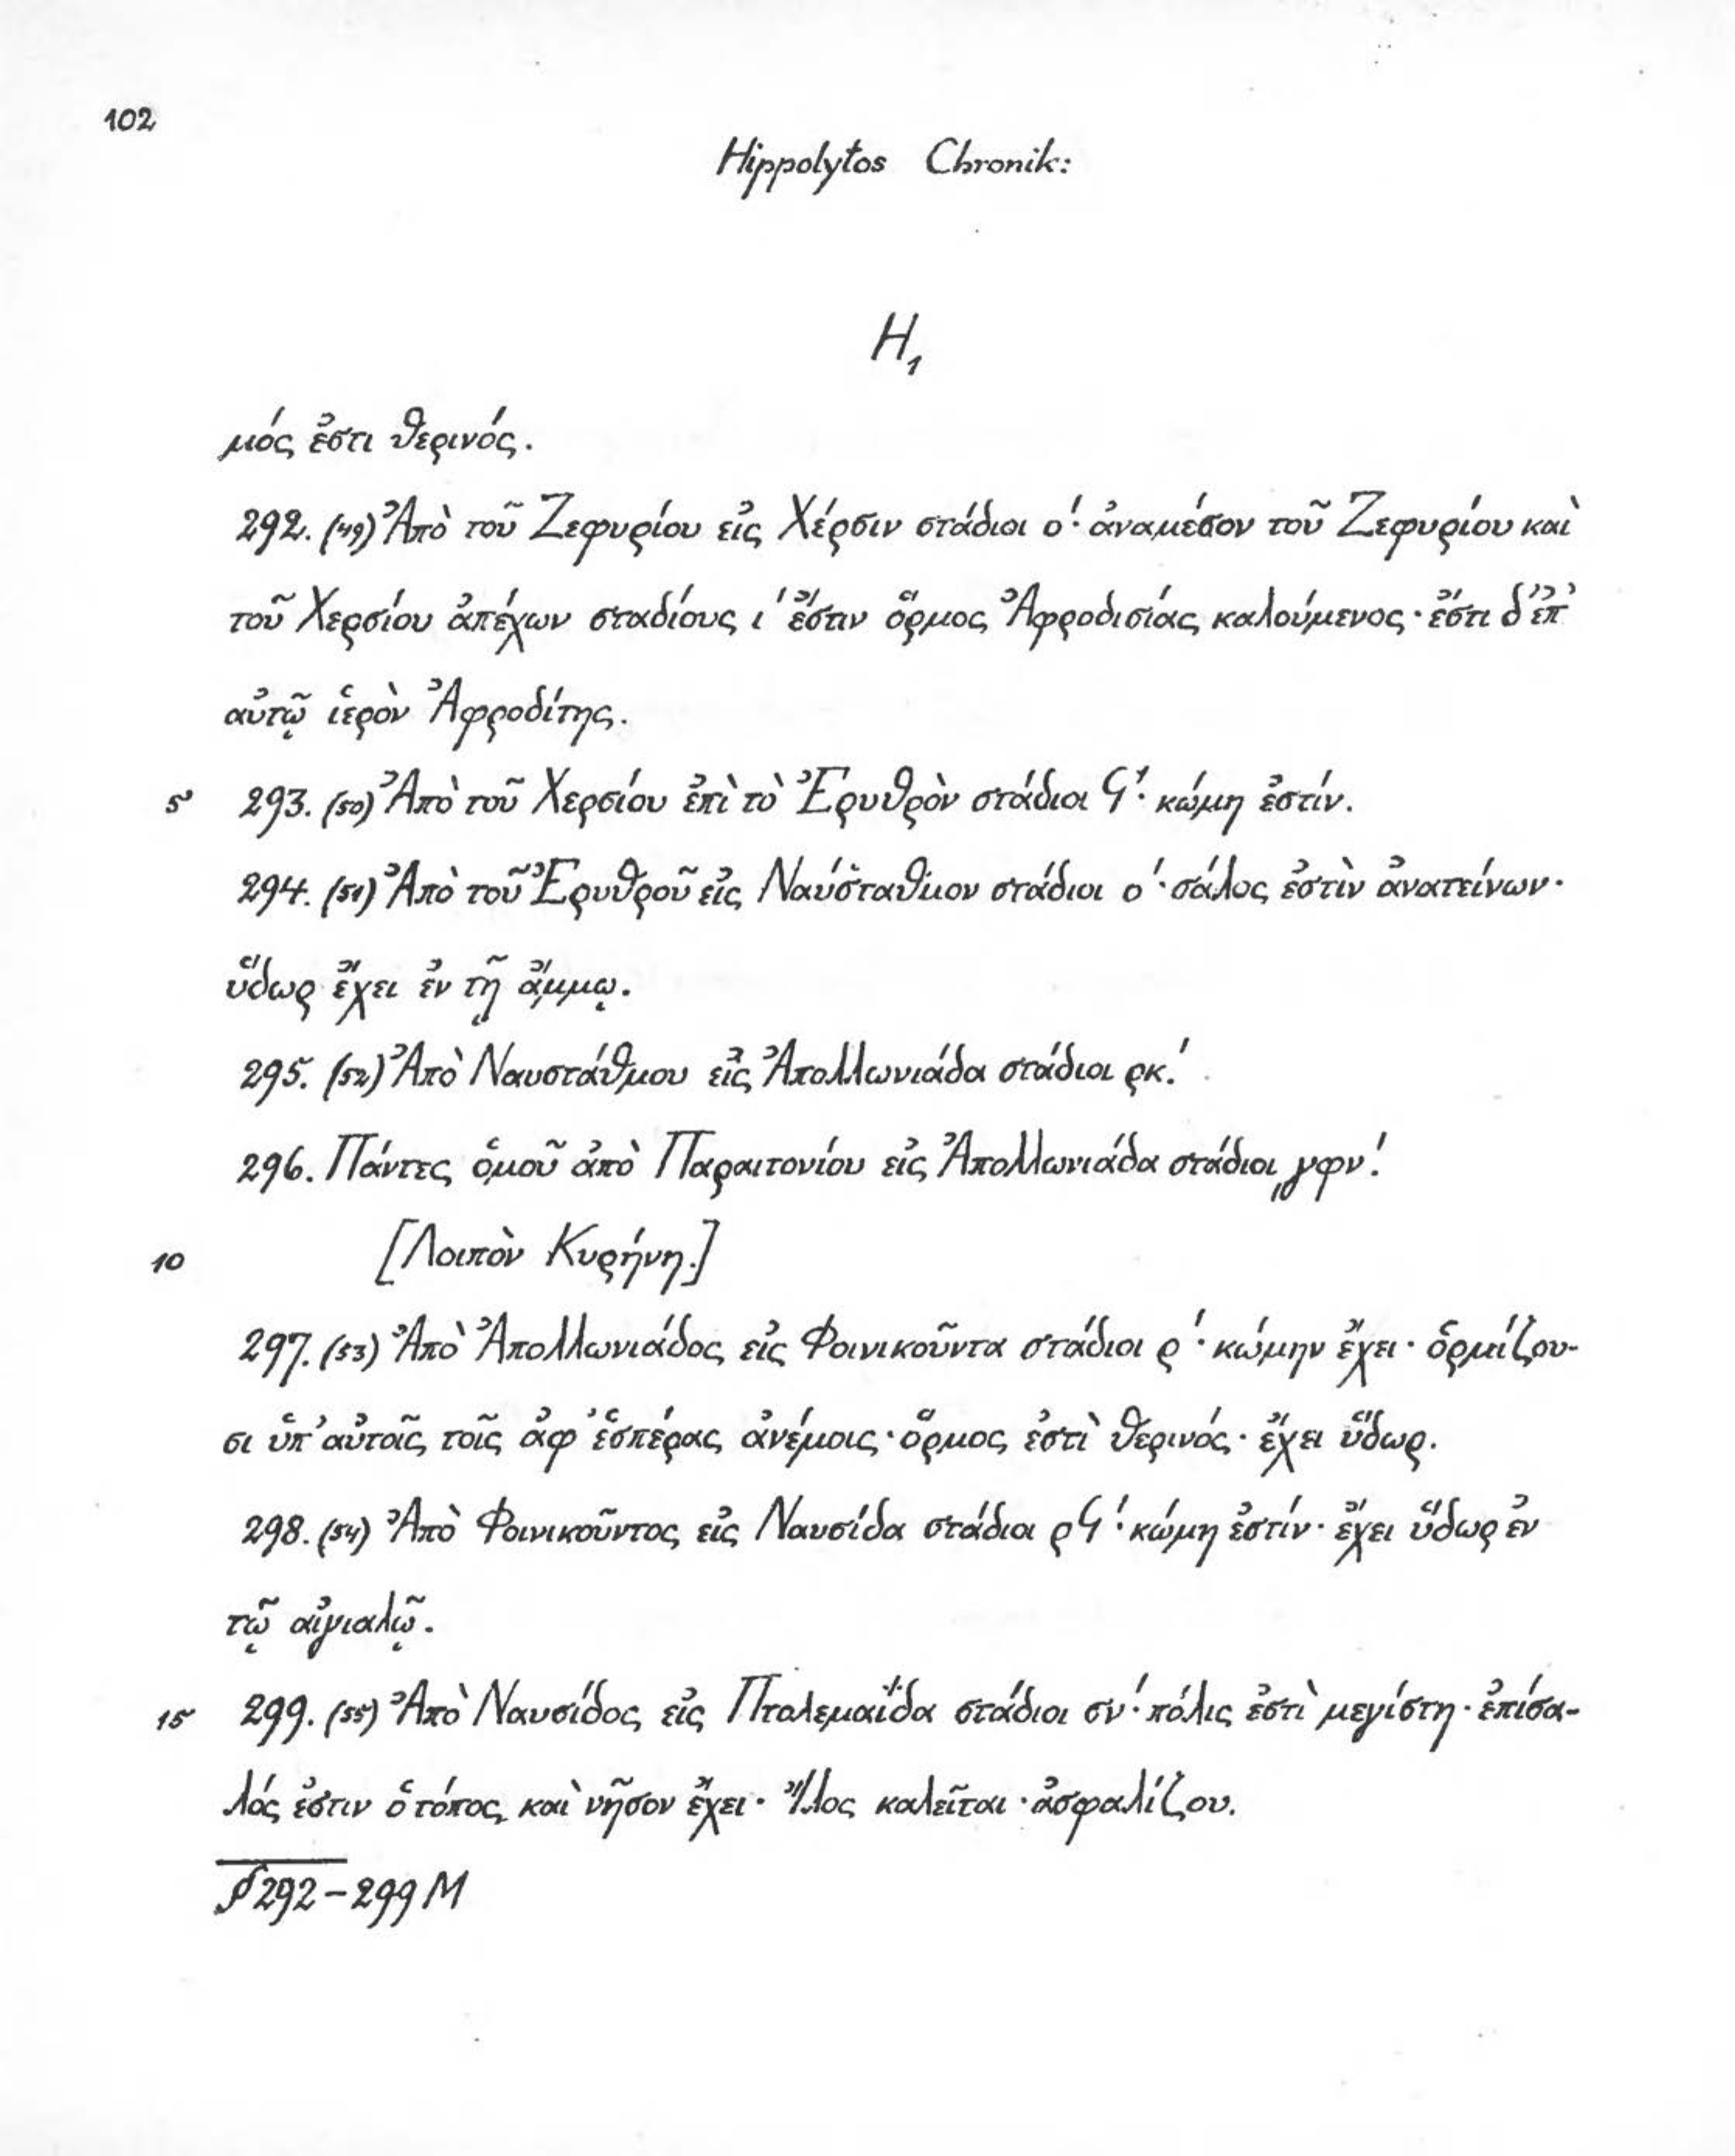 102
Hippolytos Chronik:
H₁
μός ἐστι θερινός.
292. (49) Ἀπὸ τοῦ Ζεφυρίου εἰς Χέρσιν στάδιοι ο'· ἀναμέσον τοῦ Ζεφυρίου καὶ
τοῦ Χερσίου ἀπέχων σταδίους ι' ἔστιν ὅρμος Ἀφροδισίας καλούμενος· ἔστι δ' ἐπ'
αὐτῷ ἱερὸν Ἀφροδίτης.
5 293. (50) Ἀπὸ τοῦ Χερσίου ἐπὶ τὸ Ἐρυθρὸν στάδιοι Ϟ'· κώμη ἐστίν.
294. (51) Ἀπὸ τοῦ Ἐρυθροῦ εἰς Ναύσταθμον στάδιοι ο'· σάλος ἐστὶν ἀνατείνων·
ὕδωρ ἔχει ἐν τῇ ἄμμῳ.
295. (52) Ἀπὸ Ναυστάθμου εἰς Ἀπολλωνιάδα στάδιοι ρκ'.
296. Πάντες ὁμοῦ ἀπὸ Παραιτονίου εἰς Ἀπολλωνιάδα στάδιοι ͵γφν'.
10 [Λοιπὸν Κυρήνη.]
297. (53) Ἀπὸ Ἀπολλωνιάδος εἰς Φοινικοῦντα στάδιοι ρ'· κώμην ἔχει· ὁρμίζου-
σι ὑπ' αὐταῖς τοῖς ἀφ' ἑσπέρας ἀνέμοις· ὅρμος ἐστὶ θερινός· ἔχει ὕδωρ.
298. (54) Ἀπὸ Φοινικοῦντος εἰς Ναυσίδα στάδιοι ρϞ'· κώμη ἐστίν· ἔχει ὕδωρ ἐν
τῷ αἰγιαλῷ.
15 299. (55) Ἀπὸ Ναυσίδος εἰς Πτολεμαΐδα στάδιοι σν'· πόλις ἐστὶ μεγίστη· ἐπίσα-
λός ἐστιν ὁ τόπος καὶ νῆσον ἔχει· Ἴλος καλεῖται· ἀσφαλίζου.
§ 292–299 M